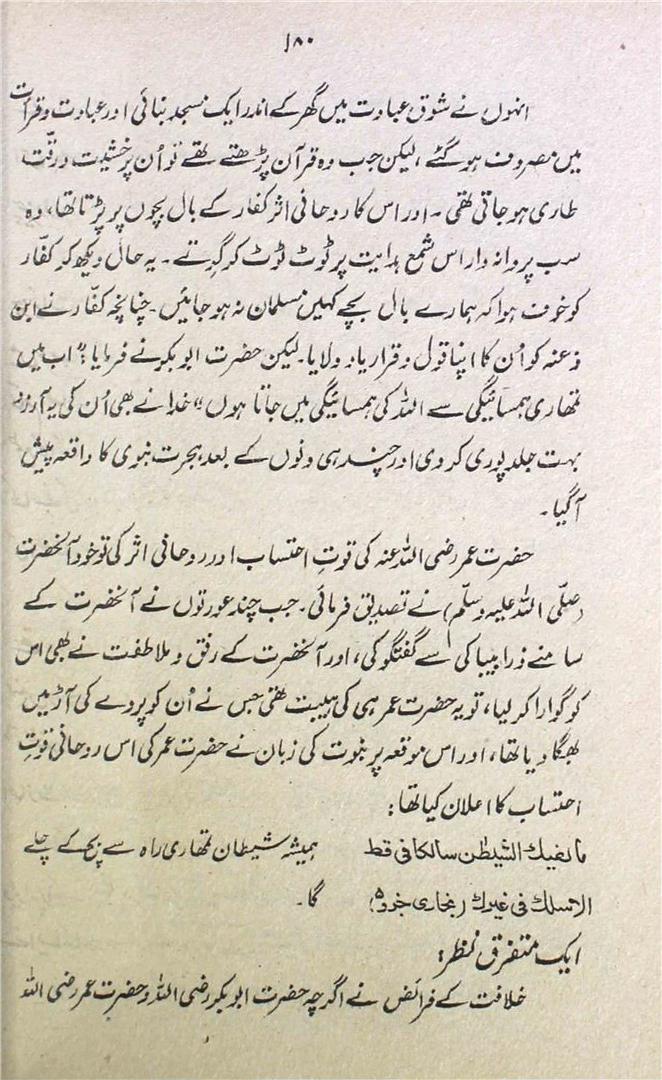 ۱۸۰
انہوں نے شوق عبادت میں گھر کے اندر ایک مسجد بنائی اور عبادت و قرأت
میں مصروف ہو گئے، لیکن جب وہ قرآن پڑھتے تھے تو اُن پر خشیت و رقّت
طاری ہو جاتی تھی۔ اور اس کا روحانی اثر کفار کے بال بچوں پر پڑتا تھا، وہ
سب پروانہ وار اس شمع ہدایت پر ٹوٹ ٹوٹ کر گرتے۔ یہ حال دیکھ کر کفّار
کو خوف ہوا کہ ہمارے بال بچے کہیں مسلمان نہ ہو جائیں۔ چنانچہ کفّار نے ابن
دغنہ کو اُن کا اپنا قول و قرار یاد دلایا۔ لیکن حضرت ابوبکر نے فرمایا: "اب میں
تمھاری ہمسائیگی سے اللہ کی ہمسائیگی میں جاتا ہوں" خدا نے بھی اُن کی یہ آرزو
بہت جلد پوری کر دی اور چند ہی دنوں کے بعد ہجرت نبوی کا واقعہ پیش
آگیا۔
حضرت عمر رضی اللہ عنہ کی قوتِ احتساب اور روحانی اثر کی تو خود آنحضرت
(صلّی اللہ علیہ وسلّم) نے تصدیق فرمائی۔ جب چند عورتوں نے آنحضرت کے
سامنے ذرا بیباکی سے گفتگو کی، اور آنحضرت کے رفق و ملاطفت نے بھی اس
کو گوارا کر لیا، تو یہ حضرت عمر ہی کی ہیبت تھی جس نے اُن کو پردے کی آڑ میں
بھگا دیا تھا، اور اس موقعہ پر نبوت کی زبان نے حضرت عمر کی اس روحانی قوتِ
احتساب کا اعلان کیا تھا:
مالفیك الشیطٰن سالكا فی قط ہمیشہ شیطان تمھاری راہ سے بچ کے چلے
الاسلك فی غیرك (بخاری جزو ۵) گا۔
ایک متفرق نظر:
خلافت کے فرائض نے اگرچہ حضرت ابوبکر رضی اللہ و حضرت عمر رضی اللہ